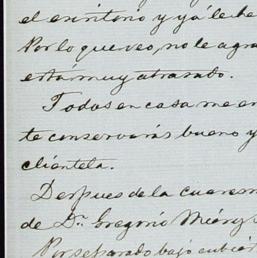 el escritorio y yá le he
Por lo que veo, no le agra
está muy atrasado.
Todos en casa me en
te conservarás bueno y
clientela.
Despues de la cuaresm
de Dn. Gregorio
Por separado bajo cubier